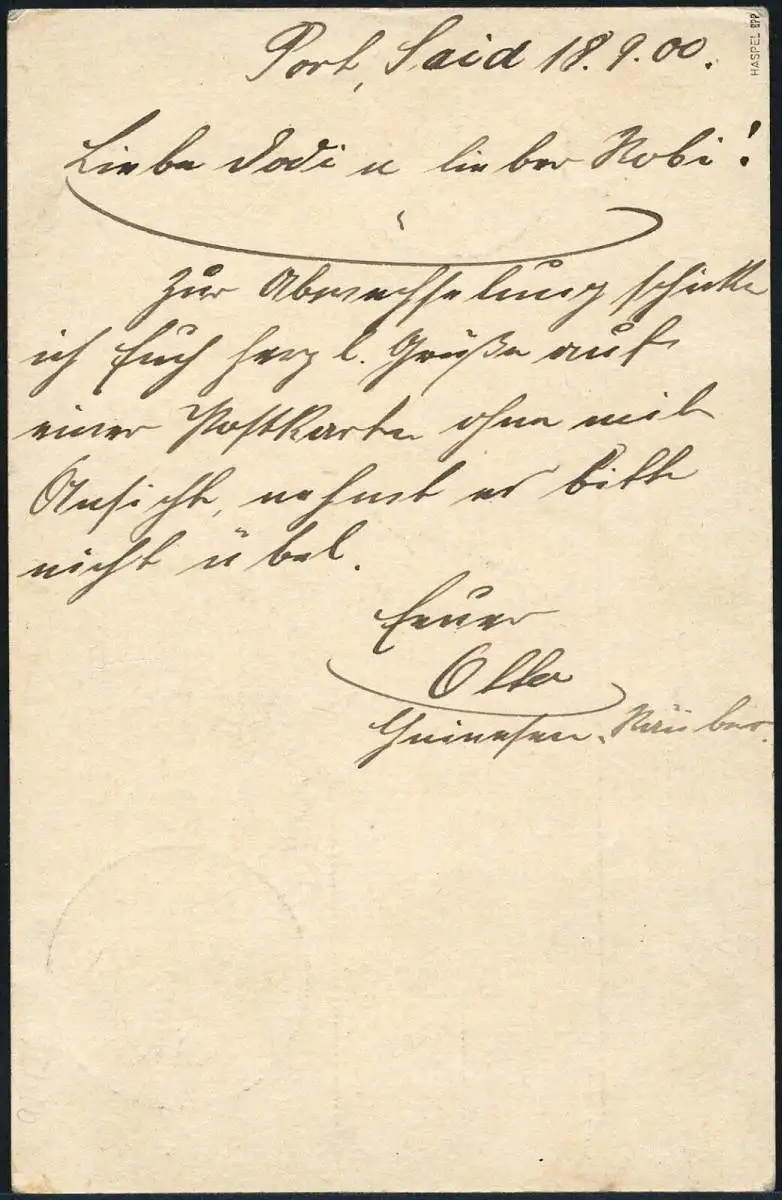 Port, Said 18.9.00.
HASPEL BPP
Liebe Dodi u lieber Robi!
Zur Abwechselung schicke
ich Euch herzl. Grüße auf
einer Postkarte ohne mit
Ansicht, nehmt es bitte
nicht übel.
Euer
Otto
Chinesen-Räuber.